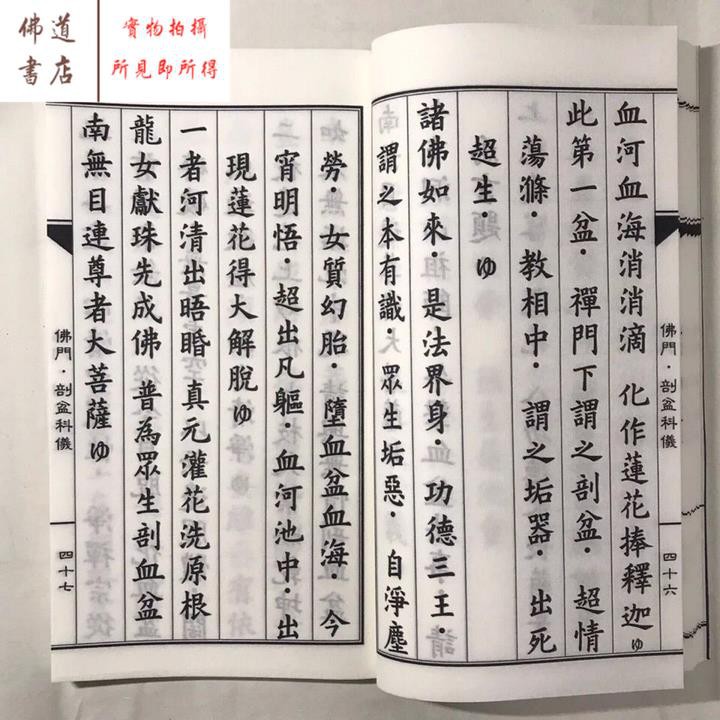 佛道書店
實物拍攝
所見即所得
血河血海消消滴 化作蓮花捧釋迦ゆ
此第一盆．禪門下謂之剖盆．超情
蕩滌．教相中．謂之垢器．出死
超生．ゆ
諸佛如來．是法界身．功德三王．
謂之本有識．眾生垢惡．自淨塵
佛門．剖盆科儀
四十六
勞．女質幻胎．墮血盆血海．今
宵明悟．超出凡軀．血河池中．出
現蓮花得大解脫ゆ
一者河清出晤睧真元灌花洗原根
龍女獻珠先成佛 普為眾生剖血盆
南無目連尊者大菩薩ゆ
佛門．剖盆科儀
四十七